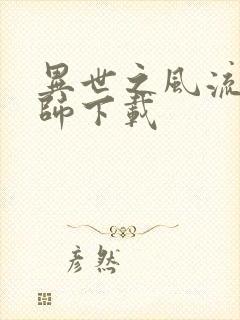 異世之風流
師下載
彥然